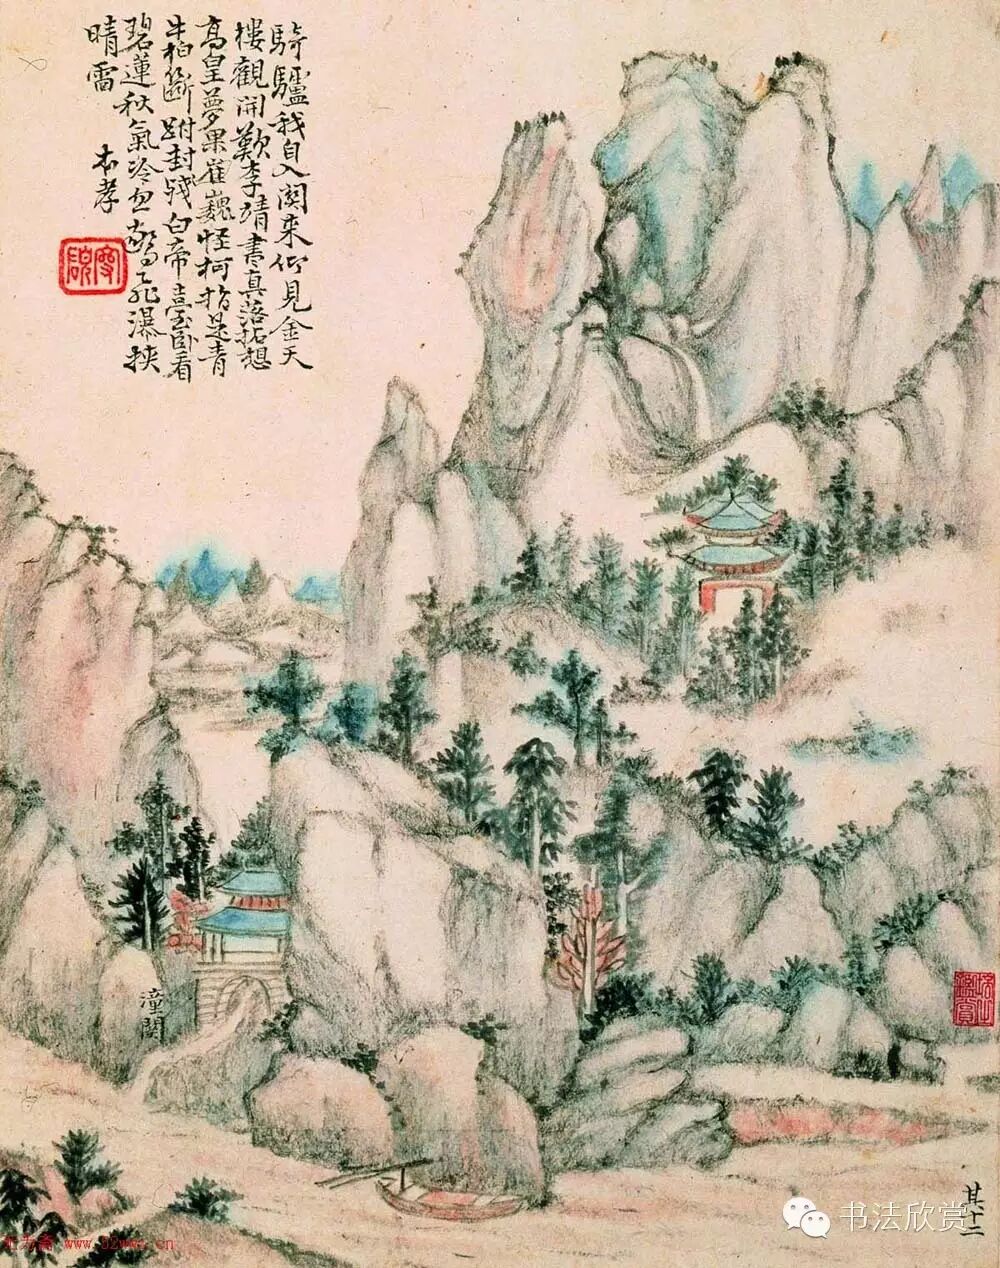 騎驢我自入関来仰見金天
樓觀開歎李靖書真落拓想
高皇夢果崔巍怪柯指是青
牛柏斷跗封殘白帝臺卧看
碧蓮秋氣冷忽驚飛瀑挾
晴雷 本孝
潼関
其十二
书法欣赏